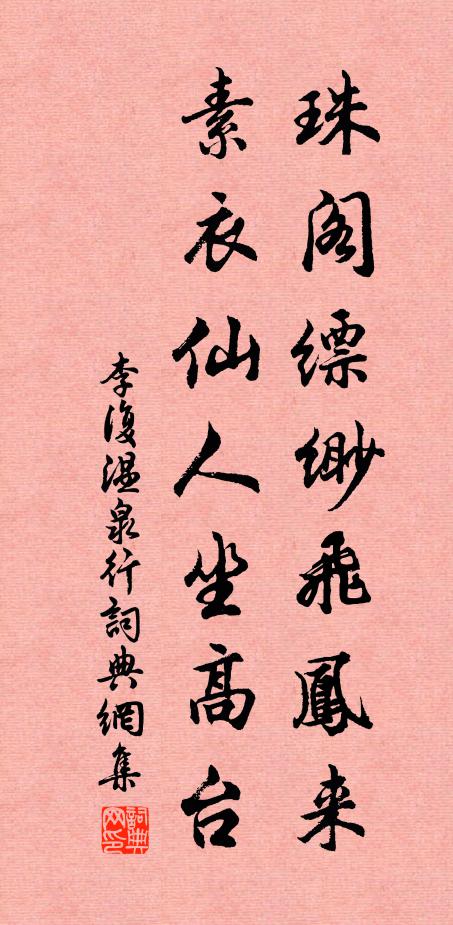 珠阁缥缈飛鳳来
素衣仙人坐高台
李復温泉行詞典網集
詞典网印